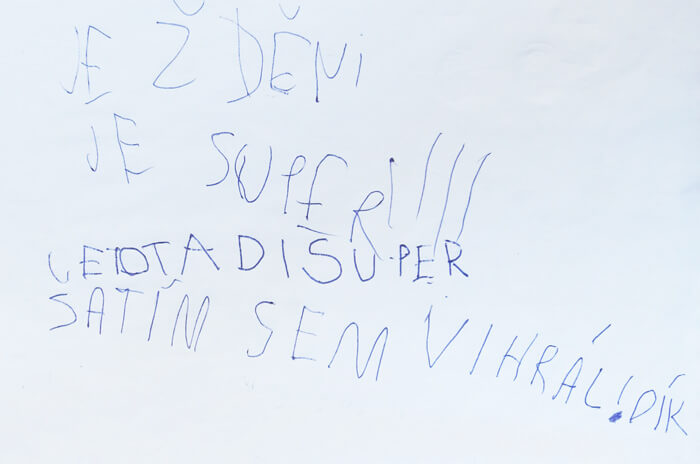 JEŽDĚNI
JE SUPER!!!!
JE TO TADI SUPER
SATÍM SEM VIHRÁL! DÍK